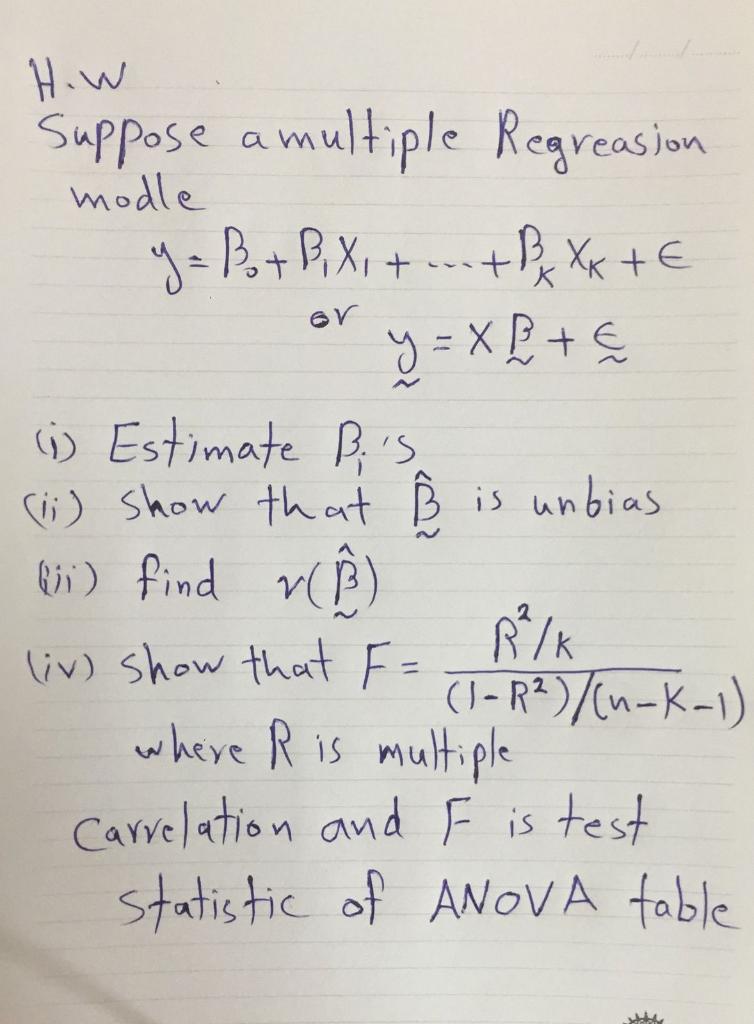 H.W
Suppose a multiple Regreasion
modle
y = β₀ + β₁X₁ + ---- + βₖ Xₖ + ϵ
or
y = X β + ϵ
(i) Estimate βᵢ's
(ii) show that β̂ is unbias
(iii) find v(β̂)
(iv) show that F = R²/k / (1-R²)/(n-k-1)
where R is multiple
Carrelation and F is test
statistic of ANOVA table